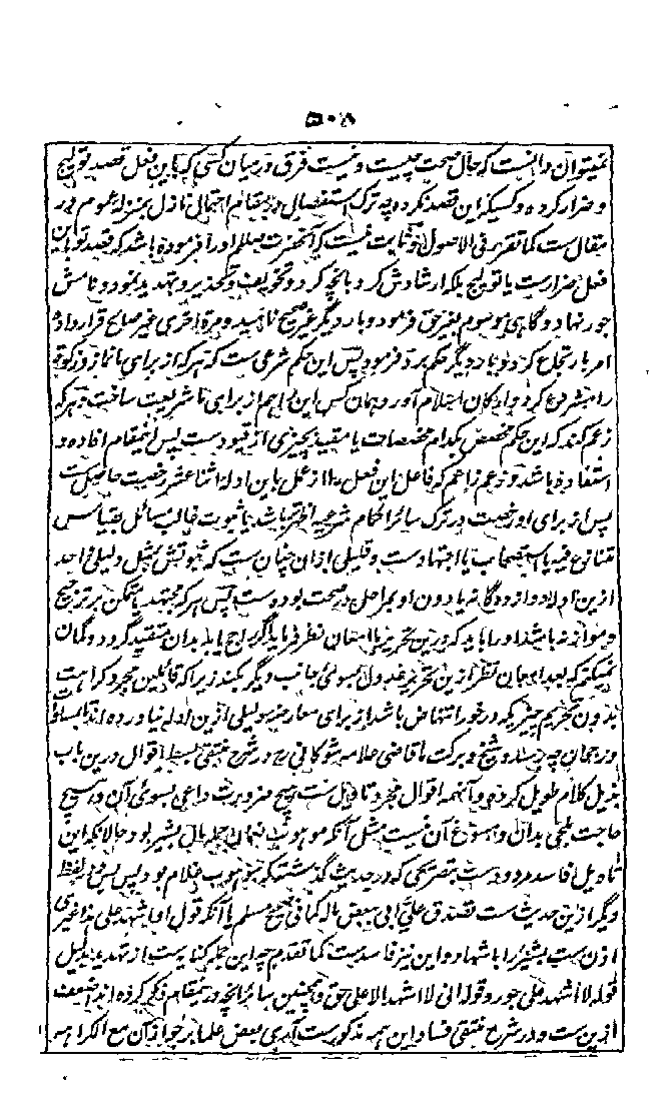 ۵۰۸
نمیتوان دانست که حال صحت چیست و نیست فرق در میان کسی که باین فعل قصد تولیج
و ضرار کرده و کسیکه این قصد نکرده چه ترک استفصال در مقام احتمال نازل بمنزله عموم در
مقال ست کما تقرر فی الاصول و ثابت نیست که آنحضرت صلعم او را فرموده باشد که قصد تو باین
فعل ضرارست یا تولیج بلکه ارشادش کرد بانچه کرد و تخویف و تحذیر و تهدید نمود و نامش
جور نهاد و گاهی موسوم بغیر حق فرمود و بار دیگر غیر صحیح نامید و مرة اخری غیر صالح قرارداد
امر بارتجاع کرد و بار دیگر حکم برد فرمود پس این حکم شرعی ست که هر که از برای ما نماز و زکوة
را مشروع کرد و ارکان اسلام آورد همان کس این را هم از برای ما شریعت ساخت و هر که
زعم کند که این حکم مخصص بکدام مخصصات یا مقید بچیزی از قیودست پس اینمقام افاده و
استفاده باشد و زعم زاعم که فاعل این فعل را از عمل باین ادله اثنا عشر رخصت حاصل ست
پس از برای او رخصت در ترک سائر احکام شرعیه اظهر باشد بنا ثبوت غالب مسائل بقیاس
متنازع فیه یا استصحاب یا اجتهادست و قلیلی ازان چنان ست که ثبوتش بمثل دلیلی واحد
ازین ادله دوازده‌گانه یا دون او بمراحل در صحت بوده ست پس هر که مجتهد متمکن بر ترجیح
و موازنه باشد او را باید که درین تحریر بامعان نظر فرماید اگر راجح یابد بدان متقید گردد و گمان
نمیکنم که بعد امعان نظر ازین تحریر عدول بسوی جانب دیگر بکند زیرا که قائلین بمجرد کراهت
بدون تحریم چیزیکه در خور انتهاض باشد از برای معارضه دلیلی ازین ادله نیاورده اند تا بمساواة
و رجحان چه رسد و شیخ و برکت ما قاضی علامه شوکانی رح در شرح منتقی بسط اقوال درین باب
بذیل کلام طویل کرده و آنهمه اقوال مجرد تاویل ست هیچ ضرورت داعی بسوی آن و هیچ
حاجت ملجی بدان و مسوغ آن نیست مثل آنکه موهوب نعمان جمیع مال بشیر بود حالانکه این
تاویل فاسد مردودست بتصریحی که در حدیث گذشته که موهوب غلام بود پس بس و لفظ
دیگر ازین حدیث ست تصدق علی ابی ببعض ماله کما فی صحیح مسلم یا آنکه قول او اشهد علی هذا غیری
اذن ست بشیر را باشهاد و این نیز فاسدست کما تقدم چه این جمله کنایه ست از تهدید بدلیل
قوله لا اشهد علی جور و قوله انی لا اشهد الا علی حق و همچنین سائر انچه در نمقام ذکر کرده اند اضعف
ازین ست و در شرح منتقی فساد این همه مذکورست آری بعض علما بر جواز آن مع الکراهه